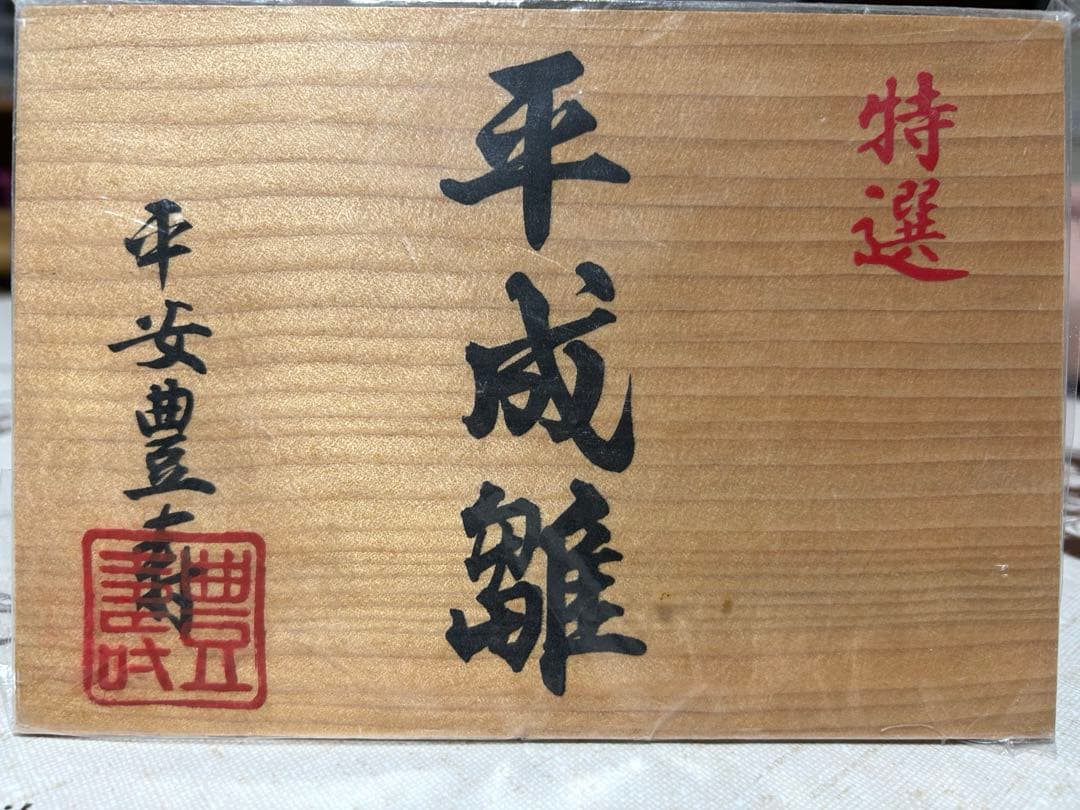 特選
平成雛
平安豊寿
豊寿